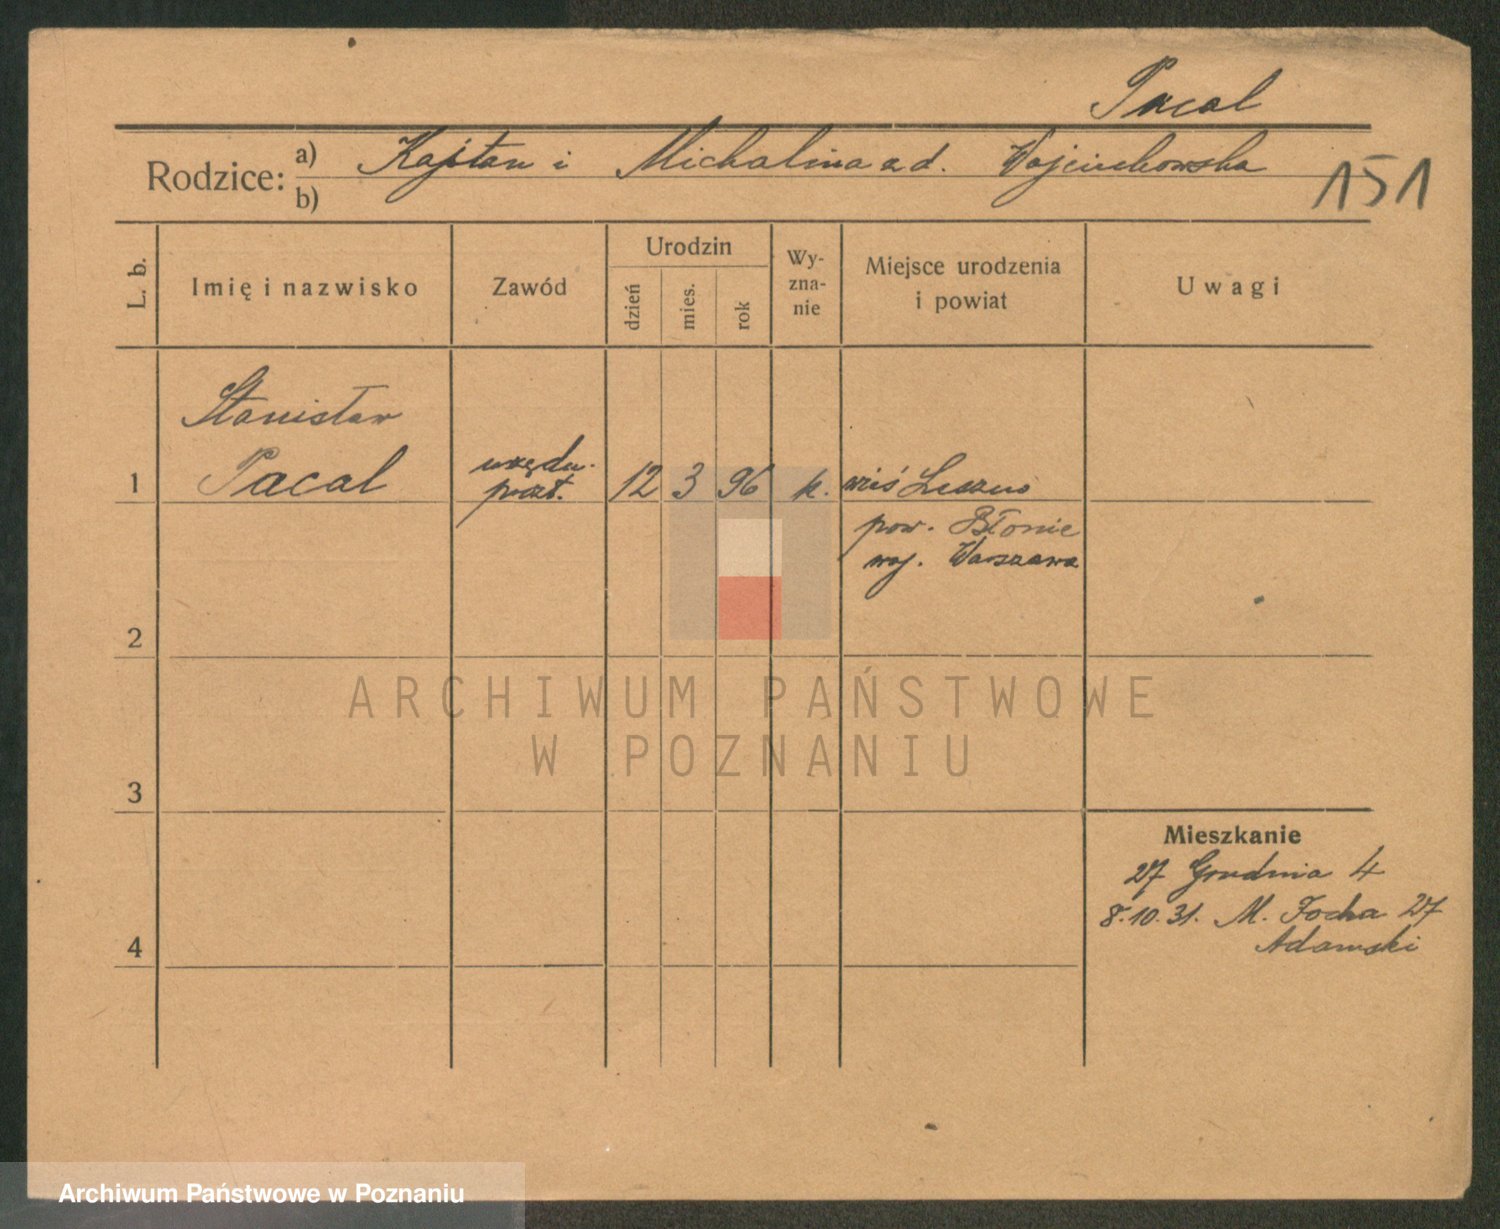 Pacal
Rodzice: a) Kajtan i Michalina z d. Wojciechowska
b)
151
L. b.
Imię i nazwisko
Zawód
Urodzin
dzień
mies.
rok
Wy-
zna-
nie
Miejsce urodzenia
i powiat
Uwagi
Stanisław
1 Pacal
urzędn.
poczt.
12 3 96 k. wieś Leszno
pow. Błonie
woj. Warszawa
2
3
4
Mieszkanie
27 Grudnia 4
8.10.31. M. Focha 27
Adamski
ARCHIWUM PAŃSTWOWE
W POZNANIU
Archiwum Państwowe w Poznaniu